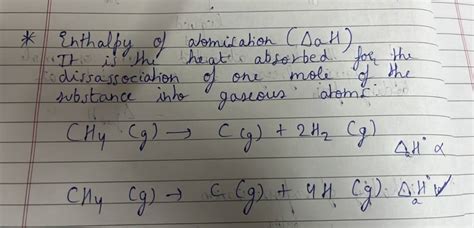 * Enthalpy of atomisation (ΔaH)
It is the heat absorbed for the
dissassociation of one mole of the
substance into gaseous atoms.
CH4 (g) → C(g) + 2H2 (g) ΔaH° ∝
CH4 (g) → C (g) + 4H (g). ΔaH° ✓